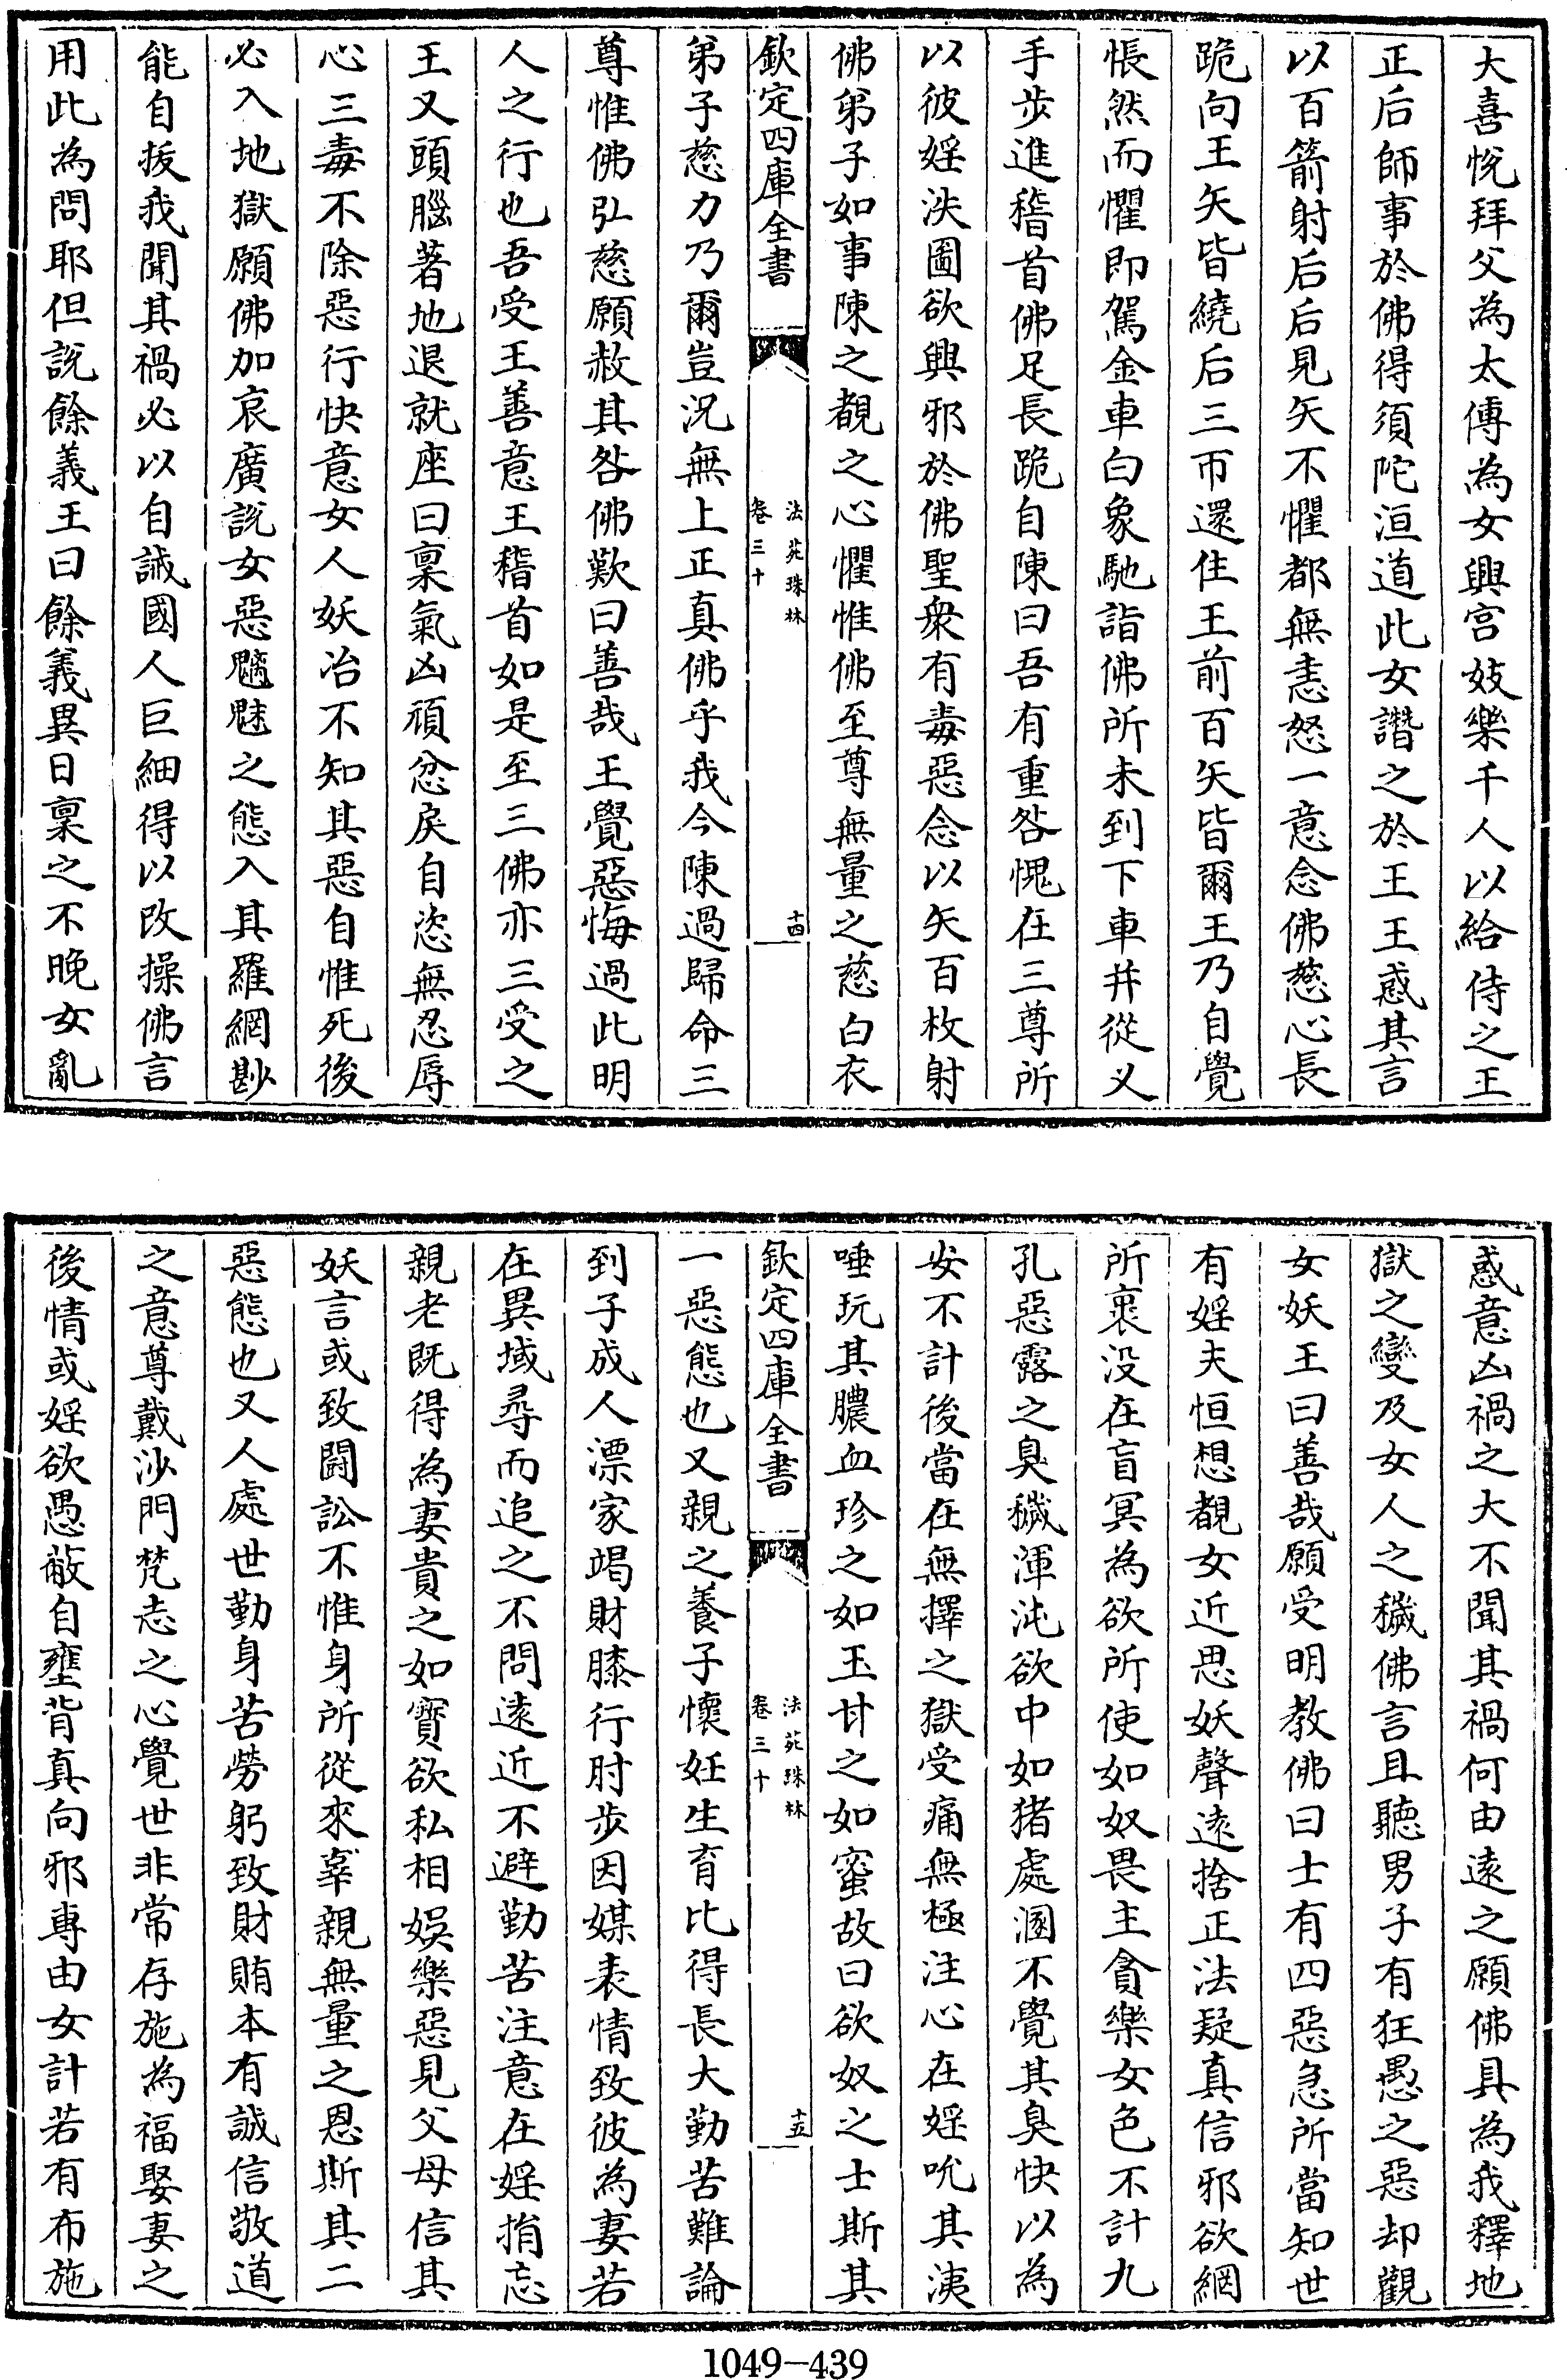 大喜悅拜父為太傅為女興宮妓樂千人以給侍之王
正后師事於佛得須陀洹道此女譖之於王王惑其言
以百箭射后后見矢不懼都無恚怒一意念佛慈心長
跪向王矢皆繞后三帀還住王前百矢皆爾王乃自覺
悵然而懼即駕金車白象馳詣佛所未到下車并從义
手步進稽首佛足長跪自陳曰吾有重咎愧在三尊所
以彼婬泆圖欲興邪於佛聖衆有毒惡念以矢百枚射
佛弟子如事陳之覩之心懼惟佛至尊無量之慈白衣
欽定四庫全書
法苑珠林
卷三十
十四
弟子慈力乃爾豈況無上正真佛乎我今陳過歸命三
尊惟佛弘慈願赦其咎佛歎曰善哉王覺惡悔過此明
人之行也吾受王善意王稽首如是至三佛亦三受之
王又頭腦著地退就座曰稟氣凶頑忿戾自恣無忍辱
心三毒不除惡行快意女人妖冶不知其惡自惟死後
必入地獄願佛加哀廣說女惡魑魅之態入其羅網尠
能自拔我聞其禍必以自誡國人巨細得以改操佛言
用此為問耶但說餘義王曰餘義異日稟之不晚女亂
惑意凶禍之大不聞其禍何由遠之願佛具為我釋地
獄之變及女人之穢佛言且聽男子有狂愚之惡却觀
女妖王曰善哉願受明教佛曰士有四惡急所當知世
有婬夫恒想覩女近思妖聲遠捨正法疑真信邪欲網
所裹没在盲冥為欲所使如奴畏主貪樂女色不計九
孔惡露之臭穢渾沌欲中如猪處溷不覺其臭快以為
安不計後當在無擇之獄受痛無極注心在婬吮其洟
唾玩其膿血珍之如玉甘之如蜜故曰欲奴之士斯其
欽定四庫全書
法苑珠林
卷三十
十五
一惡態也又親之養子懷妊生育比得長大勤苦難論
到子成人漂家竭財膝行肘步因媒表情致彼為妻若
在異域尋而追之不問遠近不避勤苦注意在婬捐忘
親老既得為妻貴之如寶欲私相娛樂惡見父母信其
妖言或致鬭訟不惟身所從來辜親無量之恩斯其二
惡態也又人處世勤身苦勞躬致財賄本有誠信敬道
之意尊戴沙門梵志之心覺世非常存施為福娶妻之
後情或婬欲愚蔽自壅背真向邪專由女計若有布施
1049-439